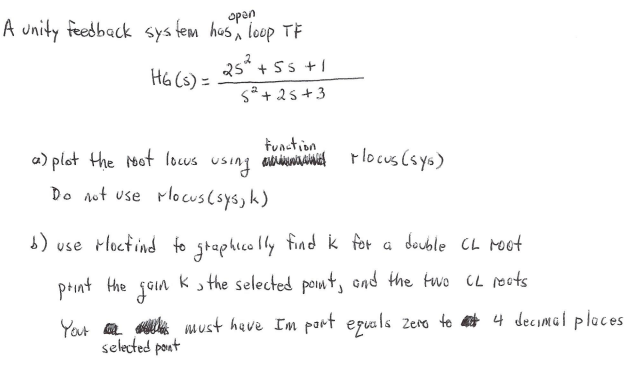 A unity feedback system has open loop TF
HG(s) = 2s² + 5s + 1
s² + 2s + 3
a) plot the root locus using function rlocus(sys)
Do not use rlocus(sys,k)
b) use rlocfind to graphically find k for a double CL root
print the gain k, the selected point, and the two CL roots
Your selected point must have Im part equals zero to 4 decimal places